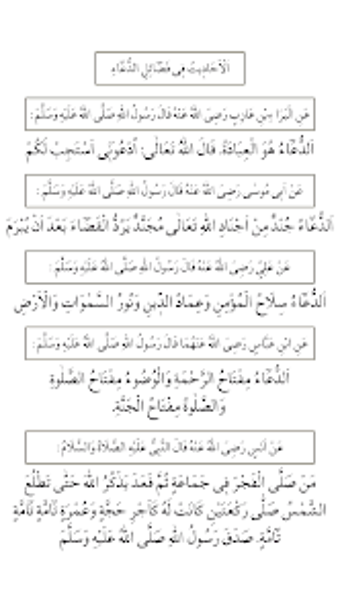 اَلْاَحَادِيثُ فِى فَضَائِلِ الدُّعَاءِ
عَنِ الْبَرَا بْنِ عَازِبٍ رَضِىَ اللهُ عَنْهُ قَالَ رَسُولُ اللهِ صَلَّى اللهُ عَلَيْهِ وَسَلَّمَ :
اَلدُّعَاءُ هُوَ الْعِبَادَةُ. قَالَ اللهُ تَعَالٰى: اُدْعُونِى اَسْتَجِبْ لَكُمْ
عَنْ اَبِى مُوسٰى رَضِىَ اللهُ عَنْهُ قَالَ رَسُولُ اللهِ صَلَّى اللهُ عَلَيْهِ وَسَلَّمَ :
اَلدُّعَاءُ جُنْدٌ مِنْ اَجْنَادِ اللهِ تَعَالٰى مُجَنَّدٌ يَرُدُّ الْقَضَاءَ بَعْدَ اَنْ يُبْرَمَ
عَنْ عَلِيٍّ رَضِىَ اللهُ عَنْهُ قَالَ رَسُولُ اللهِ صَلَّى اللهُ عَلَيْهِ وَسَلَّمَ :
اَلدُّعَاءُ سِلَاحُ الْمُؤْمِنِ وَعِمَادُ الدِّينِ وَنُورُ السَّمٰوَاتِ وَالْاَرْضِ
عَنِ ابْنِ عَبَّاسٍ رَضِىَ اللهُ عَنْهُمَا قَالَ رَسُولُ اللهِ صَلَّى اللهُ عَلَيْهِ وَسَلَّمَ :
اَلدُّعَاءُ مِفْتَاحُ الرَّحْمَةِ وَالْوُضُوءُ مِفْتَاحُ الصَّلٰوةِ
وَالصَّلٰوةُ مِفْتَاحُ الْجَنَّةِ.
عَنْ اَنَسٍ رَضِىَ اللهُ عَنْهُ قَالَ النَّبِىُّ عَلَيْهِ الصَّلَاةُ وَالسَّلَامُ :
مَنْ صَلَّى الْفَجْرَ فِى جَمَاعَةٍ ثُمَّ قَعَدَ يَذْكُرُ اللهَ حَتّٰى تَطْلُعَ
الشَّمْسُ صَلَّى رَكْعَتَيْنِ كَانَتْ لَهُ كَاَجْرِ حَجَّةٍ وَعُمْرَةٍ تَامَّةٍ تَامَّةٍ
تَامَّةٍ. صَدَقَ رَسُولُ اللهِ صَلَّى اللهُ عَلَيْهِ وَسَلَّمَ